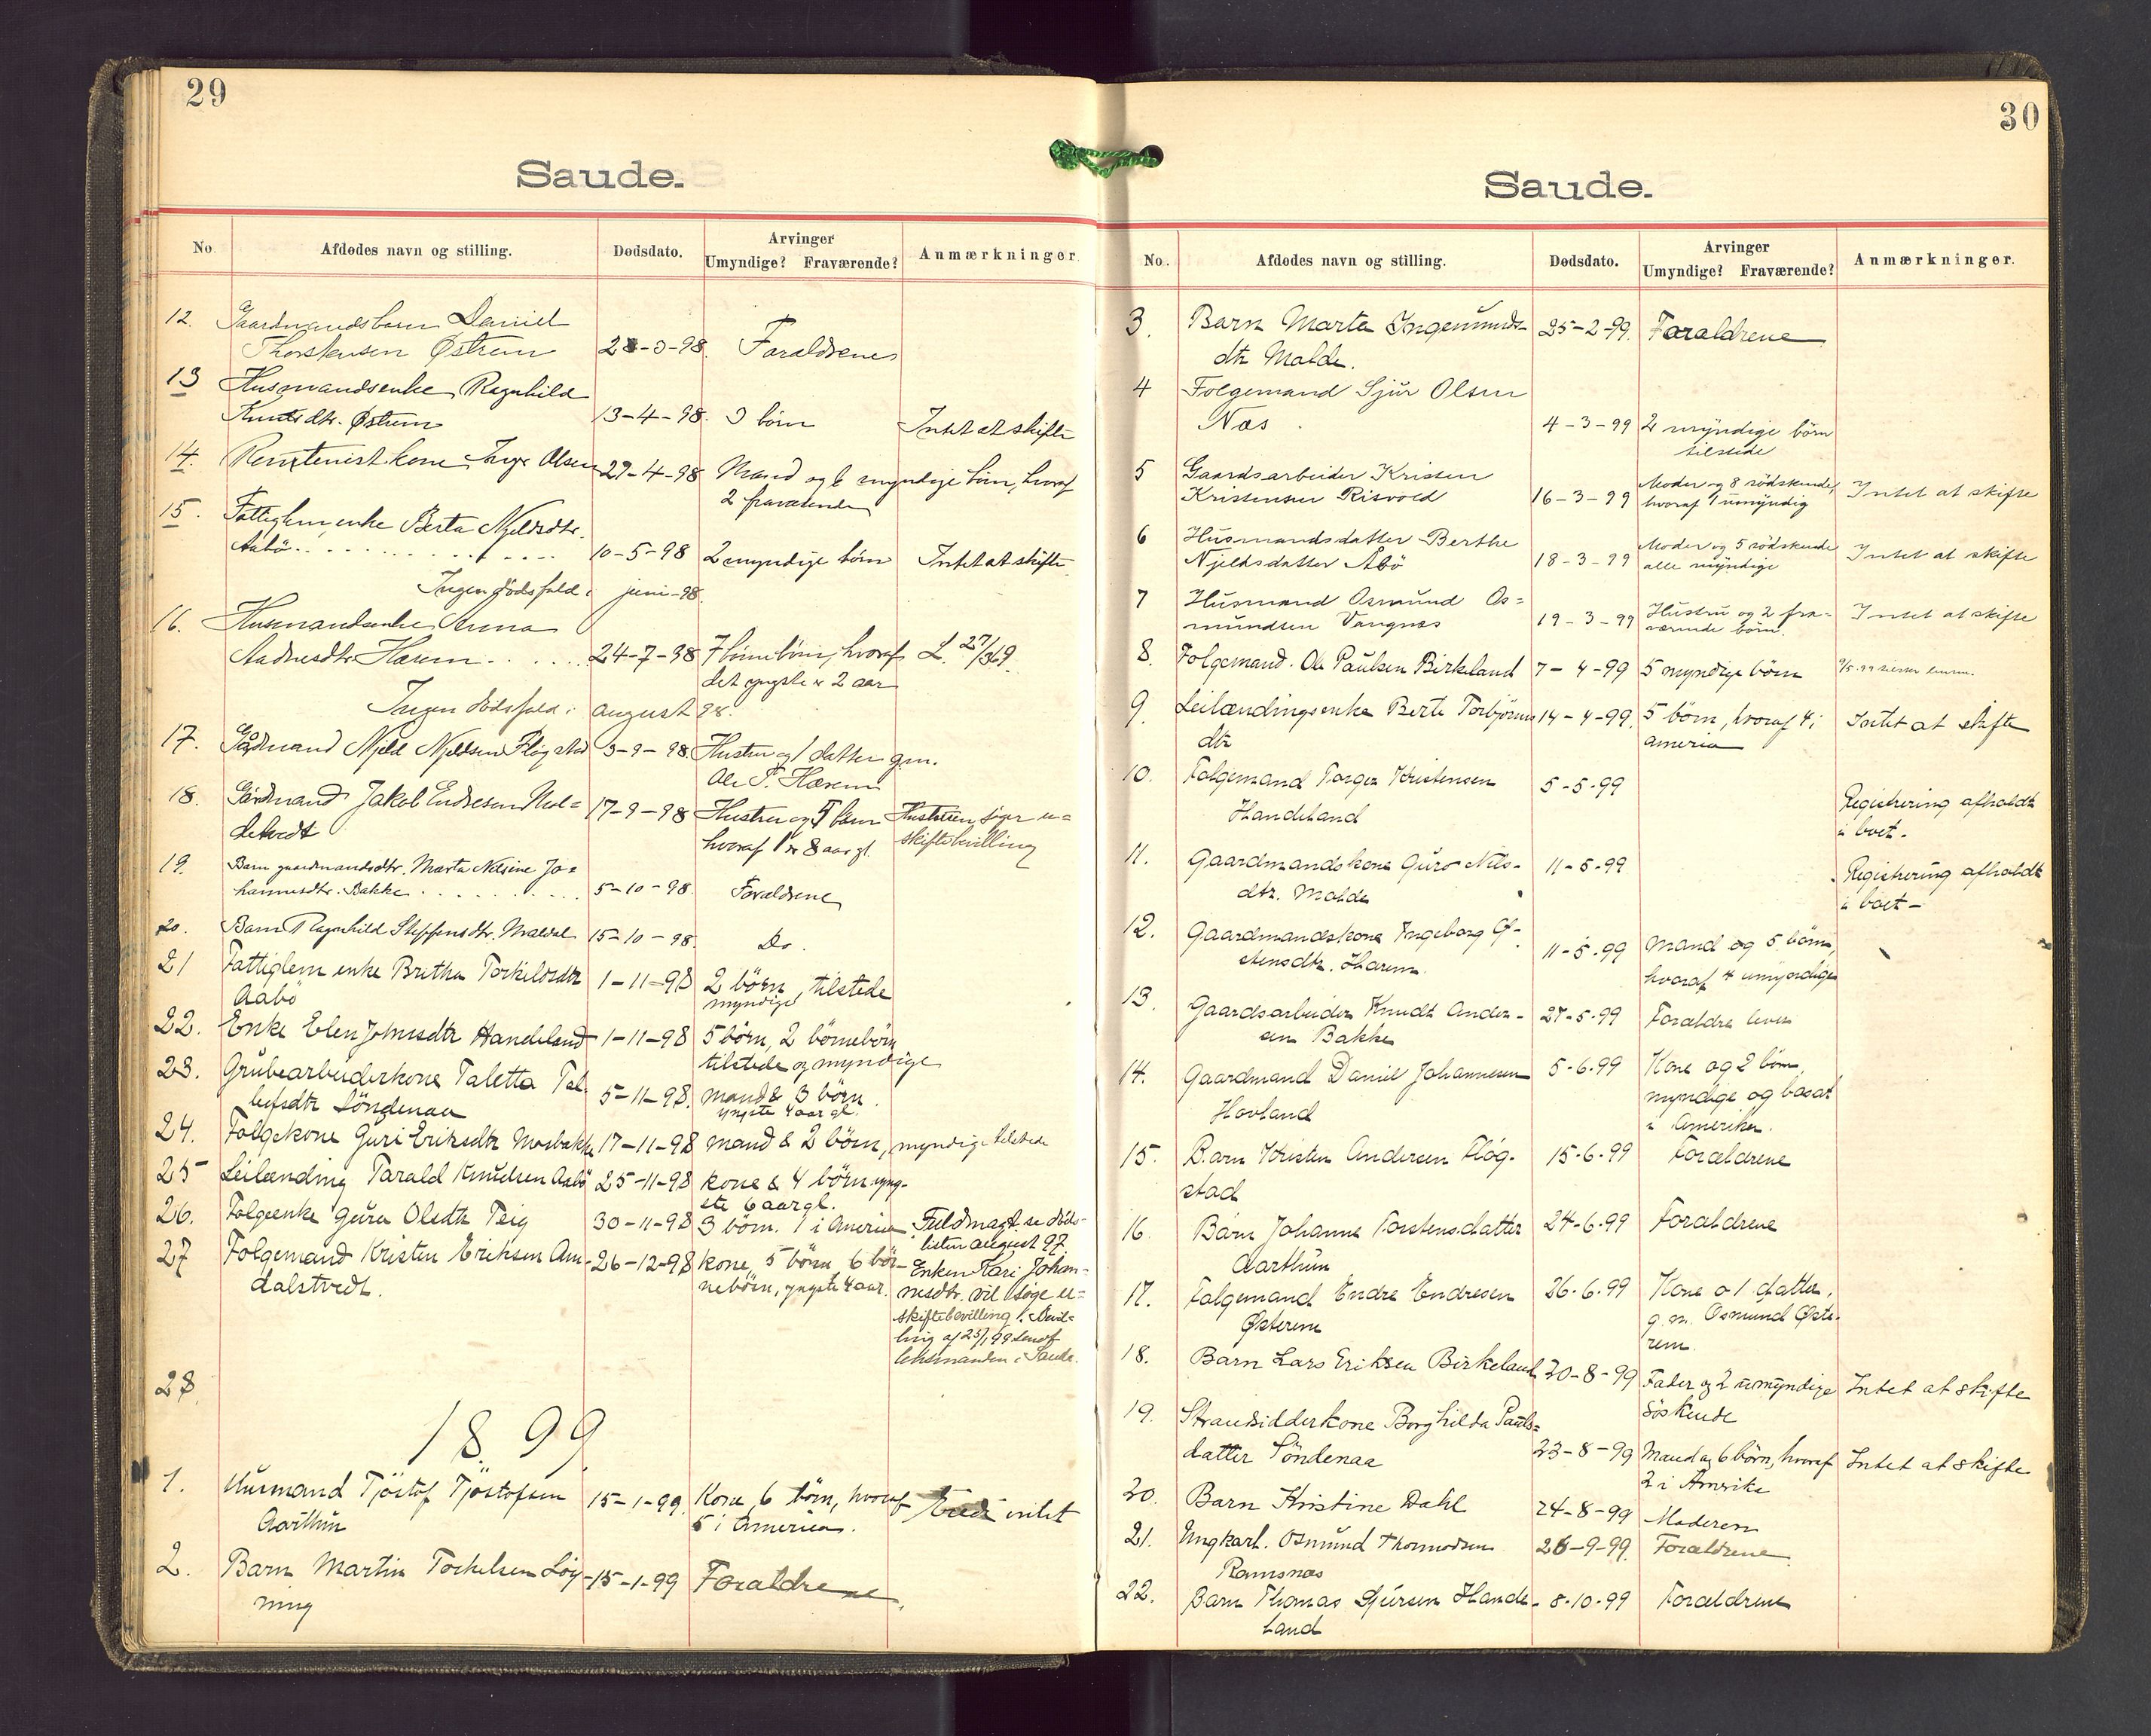 29
Saude.
No. Afdødes navn og stilling. Dødsdato. Arvinger Umyndige? Fraværende? Anmærkninger.
12. Gaardmandsbarn Daniel
Thorstensen Østrem 28-3-98. Forældrene
13 Husmandsenke Ragnhild
Knutsdtr. Østrem 13-4-98. 3 börn Intet at skifte
14. kone Inger Olsen 29-4-98 Mand og 6 myndige börn, hvoraf
2 fraværende
15. Fattiglem, enke Berta Njeldsdtr.
Aabö 10-5-98 2 myndige börn Intet at skifte
Ingen dödsfald i juni-98.
16. Husmandsenke Anna
Aadnesdtr. Hærem 24-7-98 7 börnebörn, hvoraf L. 27/3 69.
det yngste er 2 aar
Ingen dödsfald i august 98.
17. Gårdmand Njeld Njeldsen Fløgstad 3-9-98. Hustru og 1 datter gm.
Ole T. Hærem
18. Gårdmand Jakob Endresen 17-9-98 Hustru og 5 börn Hustruen söger u=
detvedt hvoraf 1 er 8 aar gl. skiftebevilling
19. Barn gaardmandsdtr. Marta Nilsine Jo=
hannesdtr. Bakke 5-10-98. Forældrene
20. Barn Ragnhild Steffensdtr. Maldal 15-10-98. Do.
21 Fattiglem enke Britha Torkildsdtr 1-11-98 2 börn, tilstede
Aabö myndige
22. Enke Elen Johnsdtr Handeland 1-11-98 5 börn, 2 börnebörn
tilstede og myndige
23. Grubearbeiderkone Taletta Tal
leifsdtr Söndenaa 5-11-98. mand & 3 börn.
yngste 4 aar gl.
24. Folgekone Guri Eriksdtr Mosbakke 17-11-98 mand & 2 börn, myndige tilstede
25 Leilænding Tarald Knudsen Aabö 25-11-98 kone & 4 börn yng-
ste 6 aar gl.
26. Folgeenke Guru Olsdtr Teig 30-11-98 3 börn. 1 i America Fuldmagt se döds-
listen august 97.
27 Folgemand Kristen Eriksen Am- 26-12-98 kone, 5 börn 6 bör- Enken Kari Johan-
dalstvedt. nebörn, yngste 4 aar. nesdtr. vil söge u-
skiftebevilling
af 25/1 99
lensmanden i Saude.
28.
1899.
1. Husmand Tjöstof Tjöstofsen 15-1-99. Kone 6 börn, hvoraf intet
Aarthun 5 i America.
2. Barn Martin Torkelsen Löy- 15-1-99 Forældrene.
ning
30
Saude.
No. Afdødes navn og stilling. Dødsdato. Arvinger Umyndige? Fraværende? Anmærkninger.
3. Barn Marta Ingemunds- 25-2-99. Forældrene
dtr Malde.
4 Folgemand Sjur Olsen
Næs. 4-3-99 2 myndige börn
tilstede
5 Gaardsarbeider Kristen Moder og 8 södskende,
Kristensen Risvold 16-3-99 hvoraf 1 umyndig Intet at skifte
6 Husmandsdatter Berthe Moder og 5 södskende
Njeldsdatter Åbö 18-3-99 alle myndige Intet at skifte
7 Husmand Osmund Os=
mundsen Vangnæs 19-3-99 Hustru og 2 fra-
værende börn. Intet at skifte
8. Folgemand. Ole Paulsen Birkeland 7-4-99 5 myndige börn
9. Leilændingsenke Berte Torbjörns 14-4-99. 5 börn, hvoraf 4 i Intet at skifte
dtr america
10. Folgemand Torger Kristensen 5-5-99 Registrering afholdt
Handeland i boet.
11. Gaardmandskone Guro Nils- 11-5-99 Registrering afholdt
dtr. Malde i boet -
12. Gaardmandskone Ingeborg Gj- 11-5-99 Mand og 5 börn,
stensdtr. Harem hvoraf 4 umyndige
13. Gaardsarbeider Knudt Ander- 27-5-99 Forældre lever
sen Bakke
14. Gaardmand Daniel Johannesen 5-6-99 Kone og 2 börn,
Hovland myndige og bosat
i Amerika.
15. Barn Kristen Andersen Flög- 15-6-99 Forældrene
stad
16. Barn Johanne Torstensdatter 24-6-99 Forældrene
Aarthun
17. Folgemand Endre Endresen 26-6-99 Kone o 1 datter,
Østerem g.m. Osmund Øste-
rem.
18. Barn Lars Eriksen Birkeland 20-8-99 Fader og 2 umyndige Intet at skifte
Söskende
19. Strandsidderkone Borghilda Pauls=
datter Söndenaa 23-8-99 Mand og 6 börn, hvoraf Intet at skifte
2 i Amerika
20. Barn Kristine Dahl 24-8-99 Moderen
21. Ungkarl. Osmund Thormodsen 28-9-99. Forældrene.
Ramsnæs
22. Barn Thomas Sjursen Hande- 8-10-99 Forældrene
land